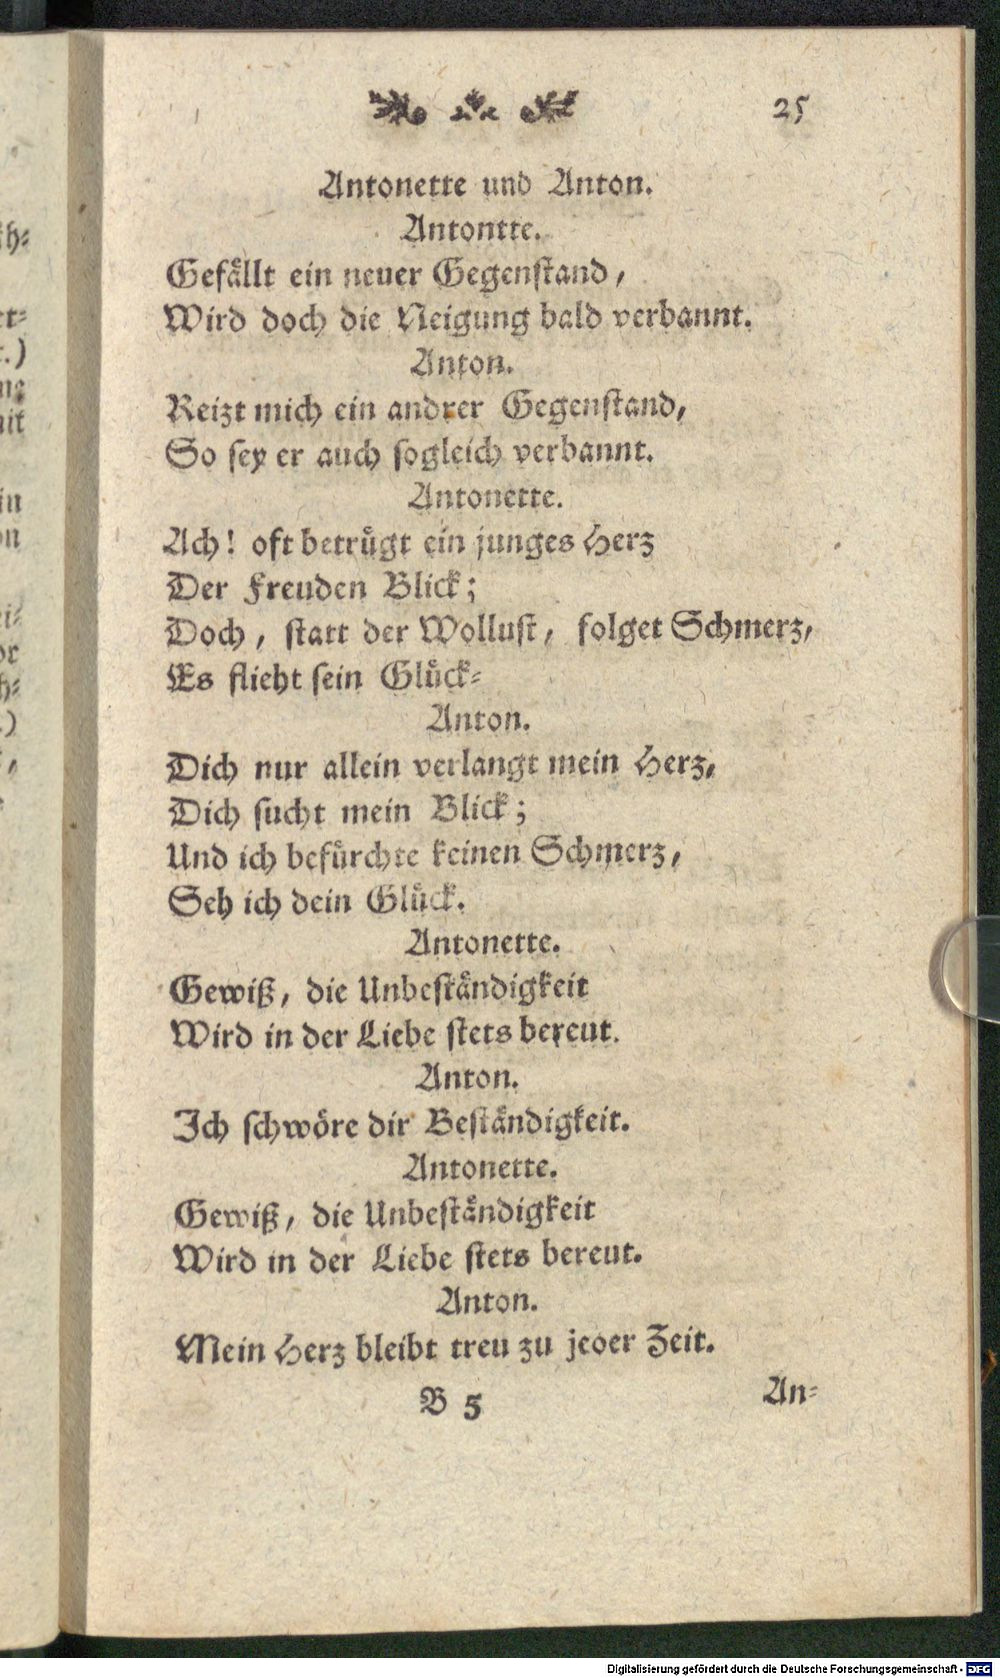 25
Antonette und Anton.
Antontte.
Gefällt ein neuer Gegenstand,
Wird doch die Neigung bald verbannt.
Anton.
Reizt mich ein andrer Gegenstand,
So sey er auch sogleich verbannt.
Antonette.
Ach! oft betrügt ein junges Herz
Der Freuden Blick;
Doch, statt der Wollust, folget Schmerz,
Es flieht sein Glück-
Anton.
Dich nur allein verlangt mein Herz,
Dich sucht mein Blick;
Und ich befürchte keinen Schmerz,
Seh ich dein Glück.
Antonette.
Gewiß, die Unbeständigkeit
Wird in der Liebe stets bereut.
Anton.
Ich schwöre dir Beständigkeit.
Antonette.
Gewiß, die Unbeständigkeit
Wird in der Liebe stets bereut.
Anton.
Mein Herz bleibt treu zu jeder Zeit.
B 5
An-
Digitalisierung gefördert durch die Deutsche Forschungsgemeinschaft - DFG